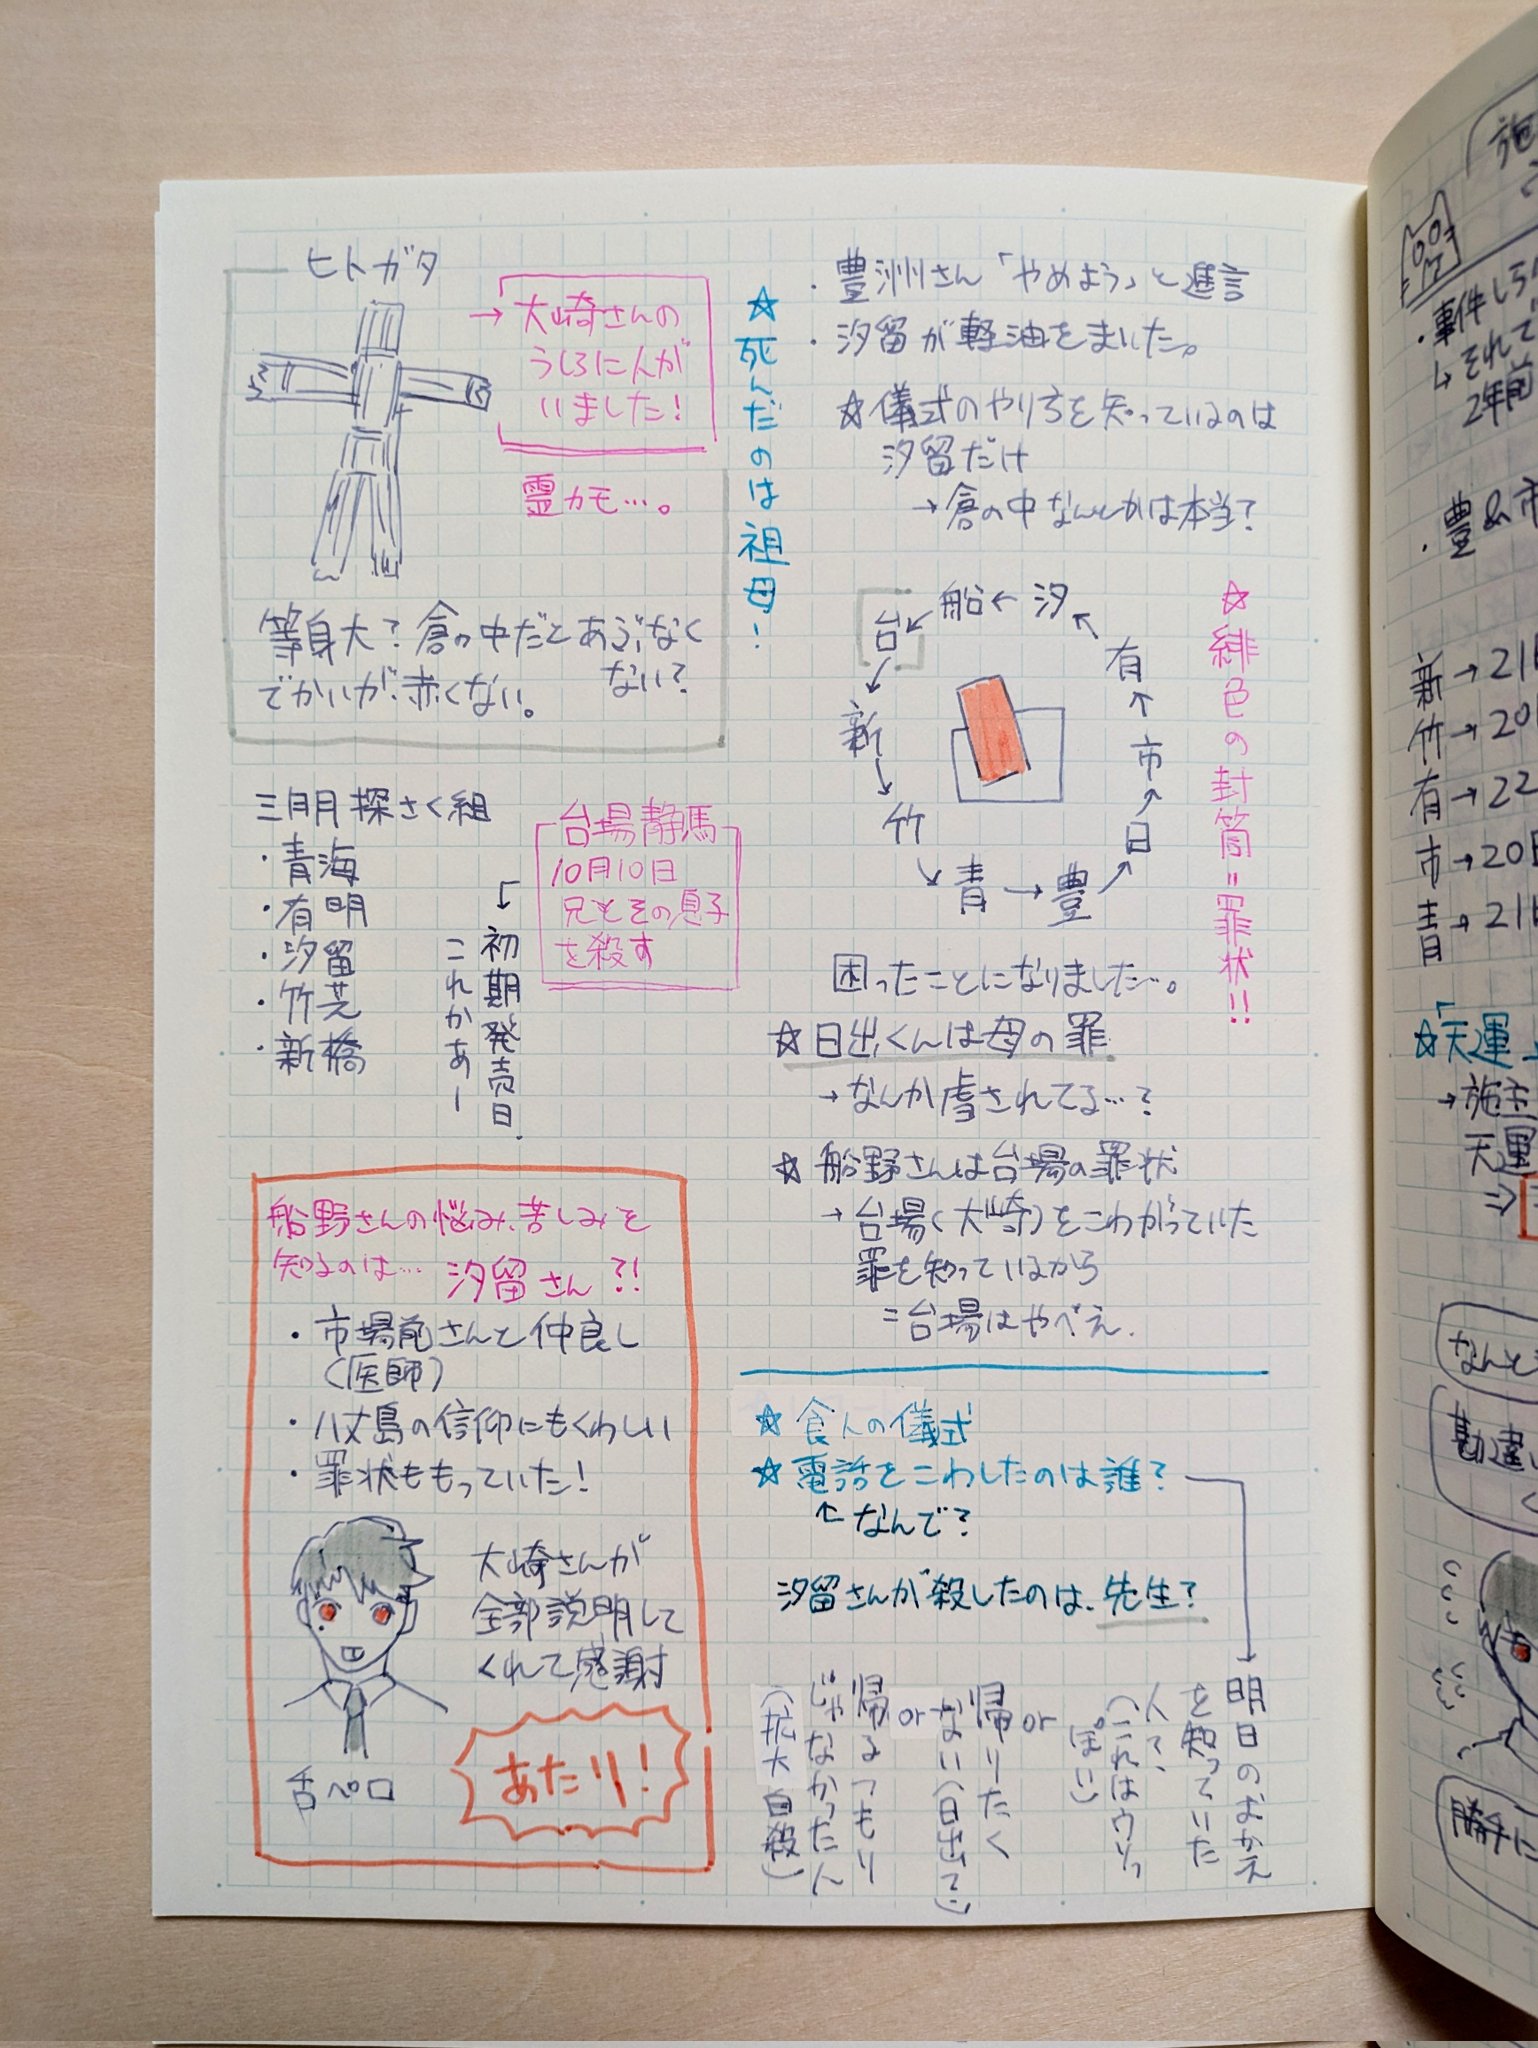 ヒトガタ
→大崎さんの
うしろに人が
いました!
霊カモ…。
等身大?倉の中だとあぶなく
ない?
でかいが赤くない。
★死んだのは祖母!
三明探さく組
・青海
・有明
・汐留
・竹芝
・新橋
台場静馬
10月10日
兄とその息子
を殺す
初期発売日
これかあー
船野さんの悩み、苦しみを
知るのは… 汐留さん?!
・市場前さんと仲良し
(医師)
・八丈島の信仰にもくわしい
・罪状ももっていた!
大崎さんが
全部説明して
くれて感謝
舌ペロ
あたり!
・豊洲さん「やめよう」と進言
・汐留が軽油をまいた。
☆儀式のやり方を知っているのは
汐留だけ
→倉の中なんとかは本当?
台←船←汐
有
市
日
新
竹
→青→豊
☆緋色の封筒=罪状!!
困ったことになりました…。
☆日出くんは母の罪
→なんか虐されてる…?
☆船野さんは台場の罪状
→台場(大崎)をこわがっていた
罪を知っているから
=台場はやべえ.
★食人の儀式
★電話をこわしたのは誰?
←なんで?
汐留さんが殺したのは、先生?
明日のむかえ
を知っていた
人?、
(これはウソっ
ぽい)
or
帰りたく
ない(日出て;)
or
帰るつもり
じゃなかったん
(拡大自殺)
・事件しらべ
↳それで
2年前
・豊&市
新→21
竹→20
有→22
市→20
青→21
☆「天運
→施主
天運
⇒
なんと
勘違い
く
勝手に